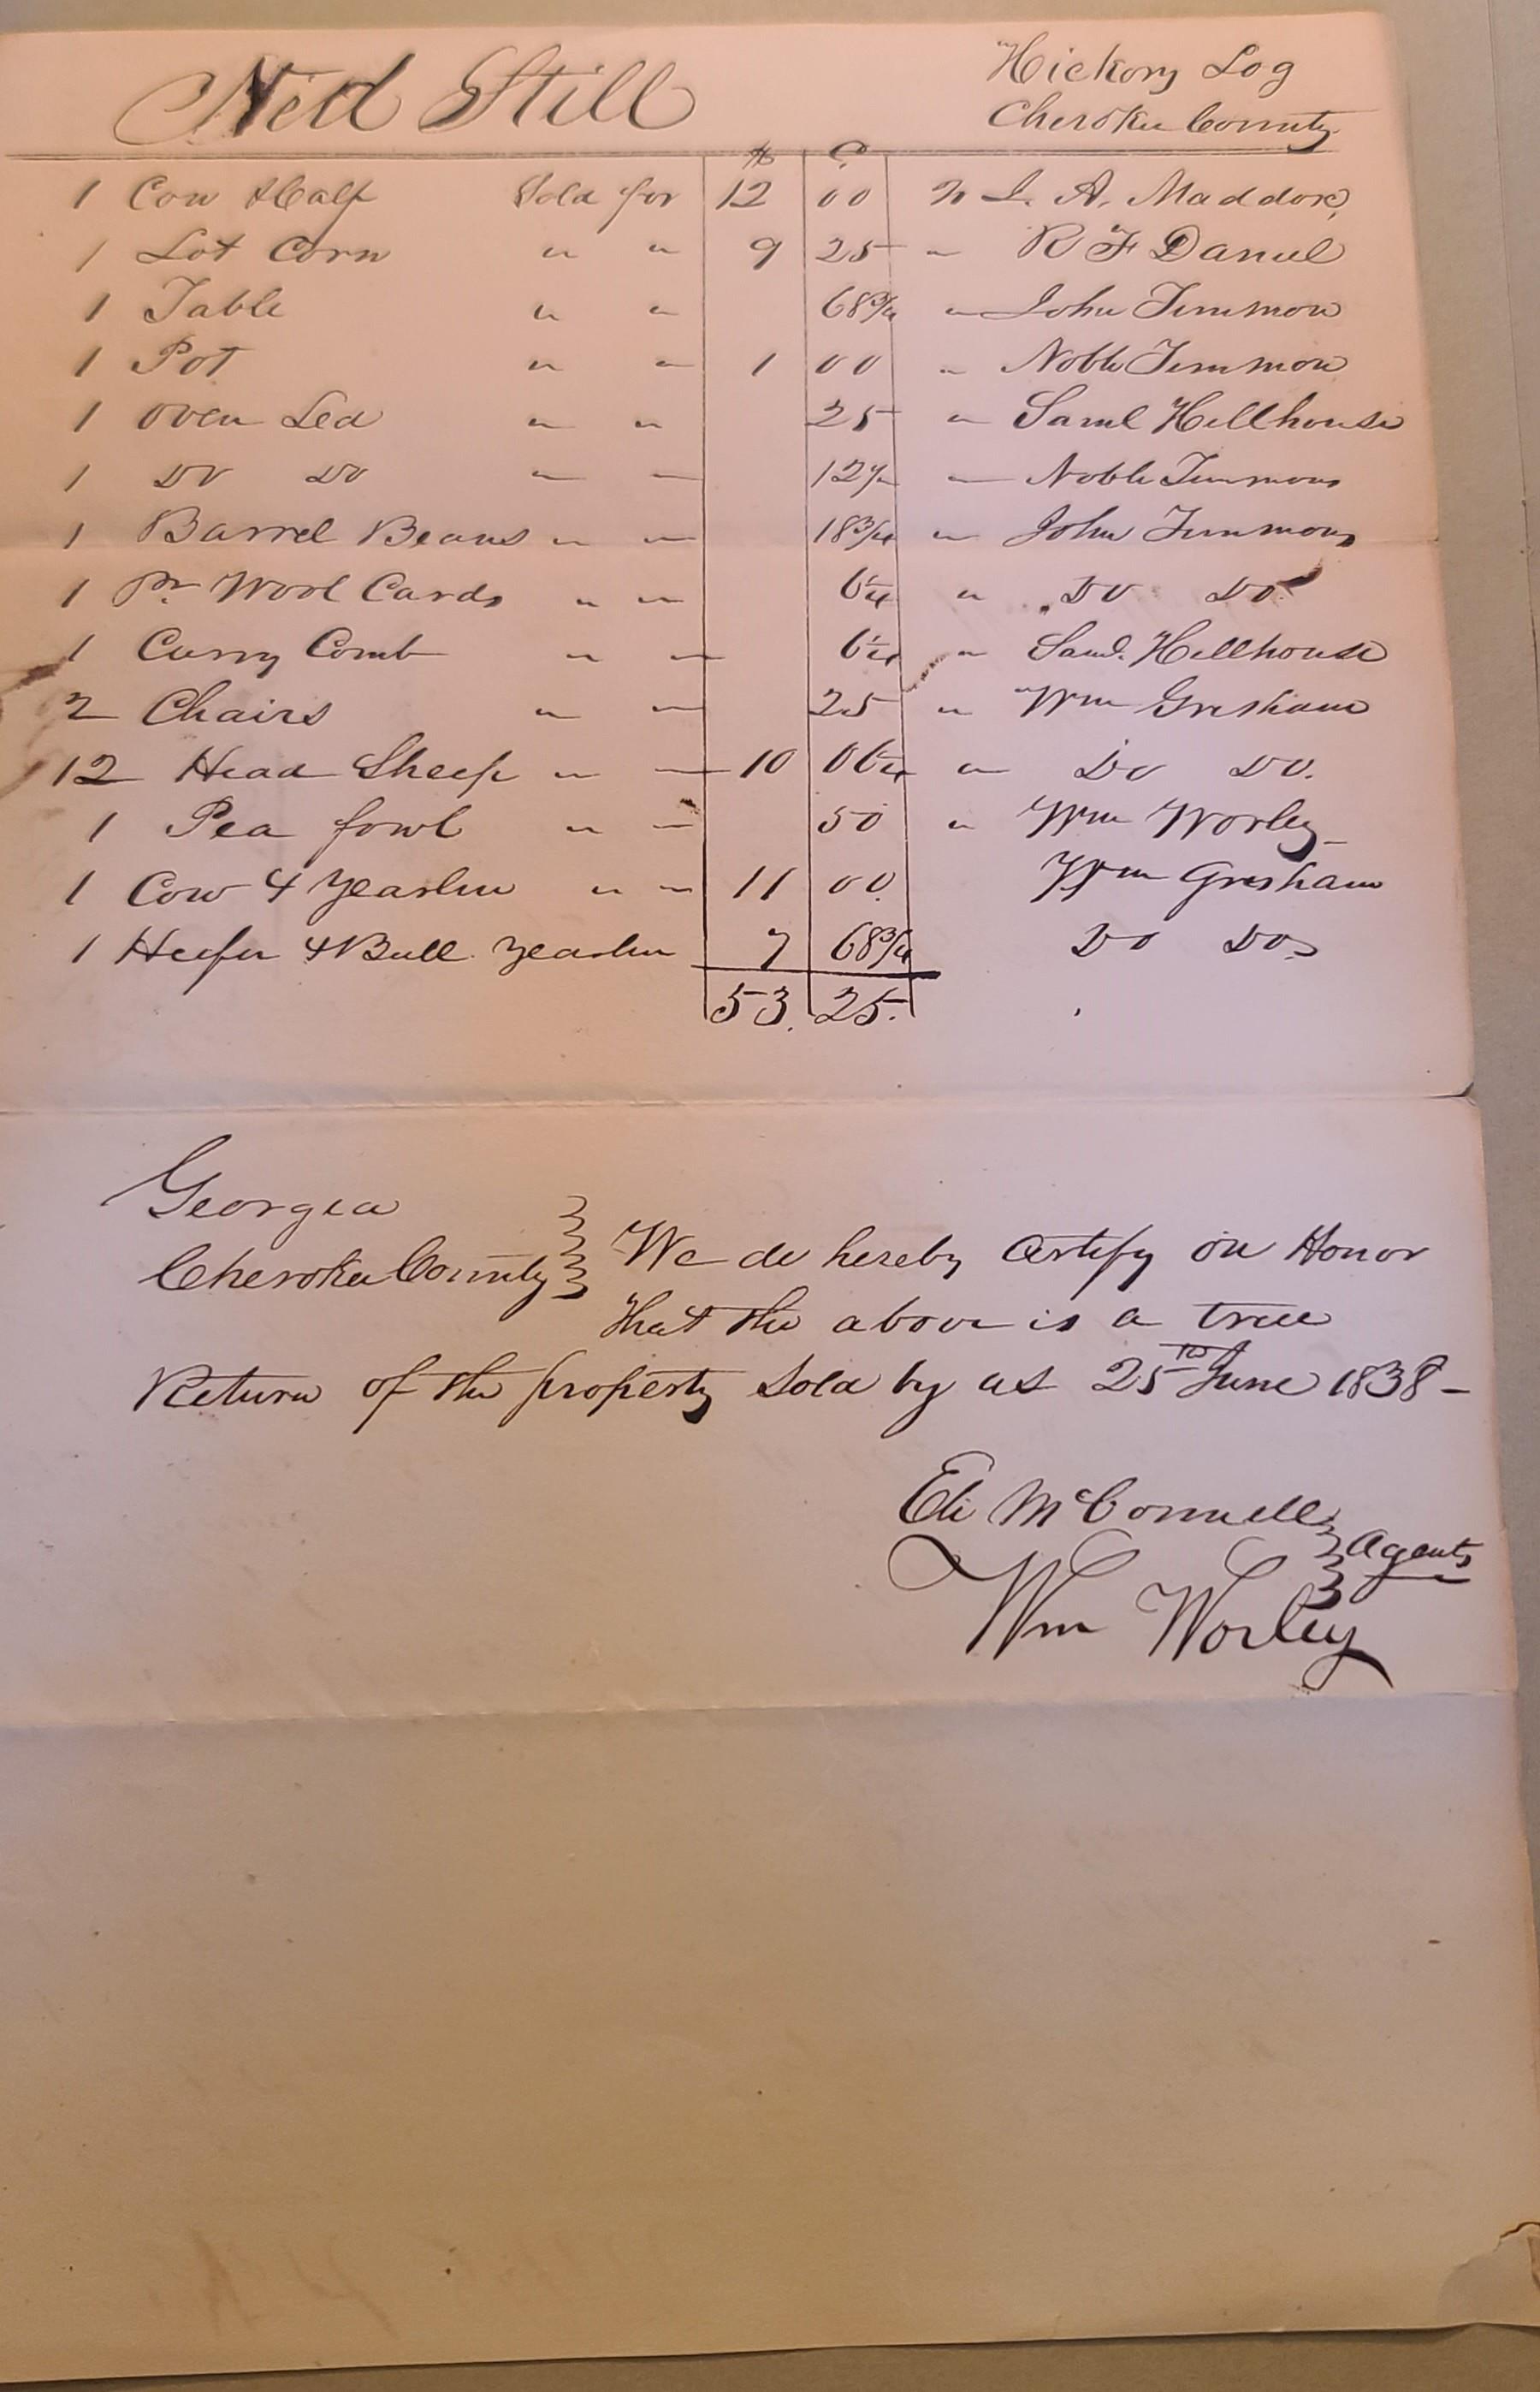 Ned Still
Hickory Log
Cherokee County
$ C
1 Cow & Calf Sold for 12 00 To L. A. Maddox
1 Lot Corn " " 9 25 " R F Daniel
1 Table " " 68 3/4 " John Timmon
1 Pot " " 1 00 " Noble Timmon
1 Oven Led " " 25 " Saml Hillhouse
1 Do Do " " 12 1/2 " Noble Timmons
1 Barrel Beans " " 18 3/4 " John Timmons
1 Pr Wool Cards " " 6 1/4 " Do Do
1 Curry Comb " " 6 1/4 " Saml. Hillhouse
2 Chairs " " 25 " Wm Gresham
12 Head Sheep " " 10 06 1/4 " Do Do.
1 Pea fowl " " 50 " Wm Worley
1 Cow & Yearlin " " 11 00. Wm Gresham
1 Heifer & Bull Yearlin 7 68 3/4 Do Do
53. 25.
Georgia
Cherokee County
We do hereby certify on Honor
that the above is a true
Return of the property Sold by us 25th June 1838 –
Eli McConnell
Agents
Wm Worley